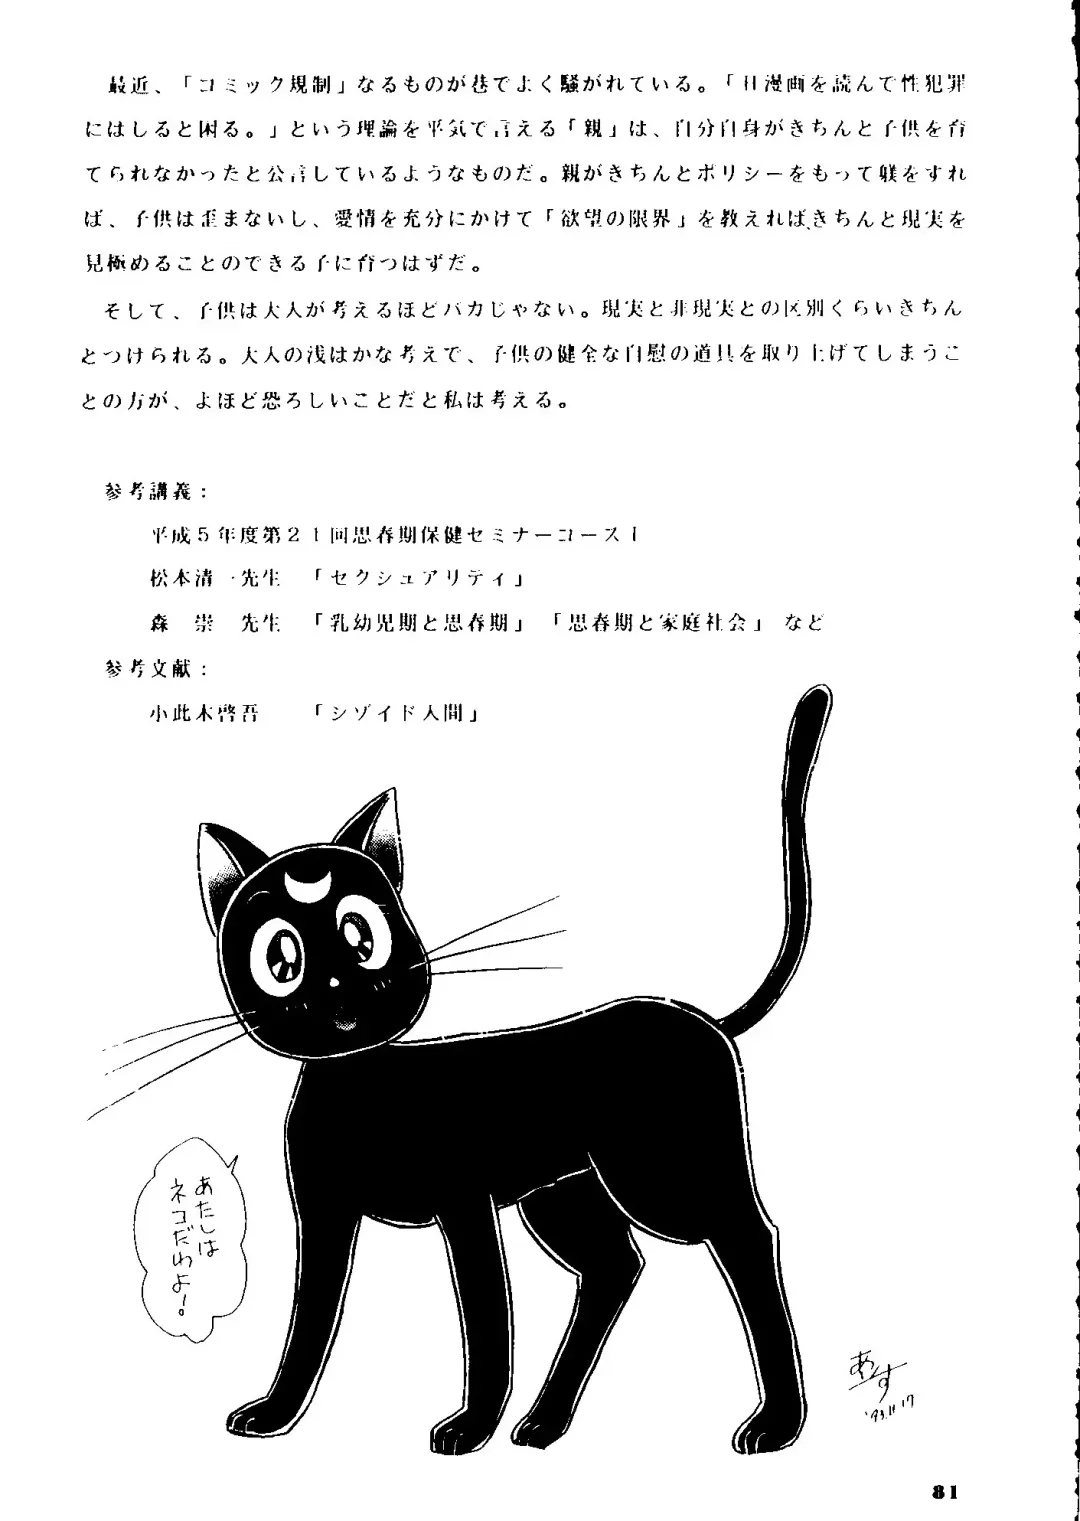 最近、「コミック規制」なるものが巷でよく騒がれている。「H漫画を読んで性犯罪
にはしると困る。」という理論を平気で言える「親」は、自分自身がきちんと子供を育
てられなかったと公言しているようなものだ。親がきちんとポリシーをもって躾をすれ
ば、子供は歪まないし、愛情を充分にかけて「欲望の限界」を教えれば、きちんと現実を
見極めることのできる子に育つはずだ。
そして、子供は大人が考えるほどバカじゃない。現実と非現実との区別くらいきちん
とつけられる。大人の浅はかな考えで、子供の健全な自慰の道具を取り上げてしまうこ
との方が、よほど恐ろしいことだと私は考える。
参考講義：
平成5年度第21回思春期保健セミナーコースI
松本清一先生 「セクシュアリティ」
森 崇 先生 「乳幼児期と思春期」「思春期と家庭社会」 など
参考文献：
小此木啓吾 「シゾイド人間」
あたしは
ネコだわよ！。
あんす
'93.11.17
81